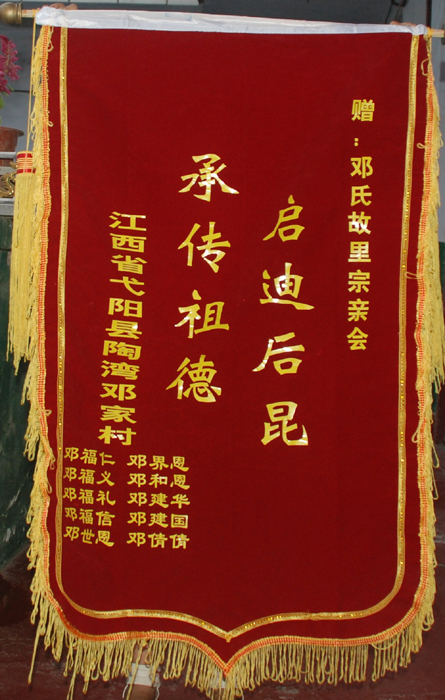 赠：邓氏故里宗亲会
启迪后昆
承传祖德
江西省弋阳县陶湾邓家村
邓福仁 邓界恩
邓福义 邓和恩
邓福礼 邓建华
邓福信 邓建国
邓世恩 邓倩倩